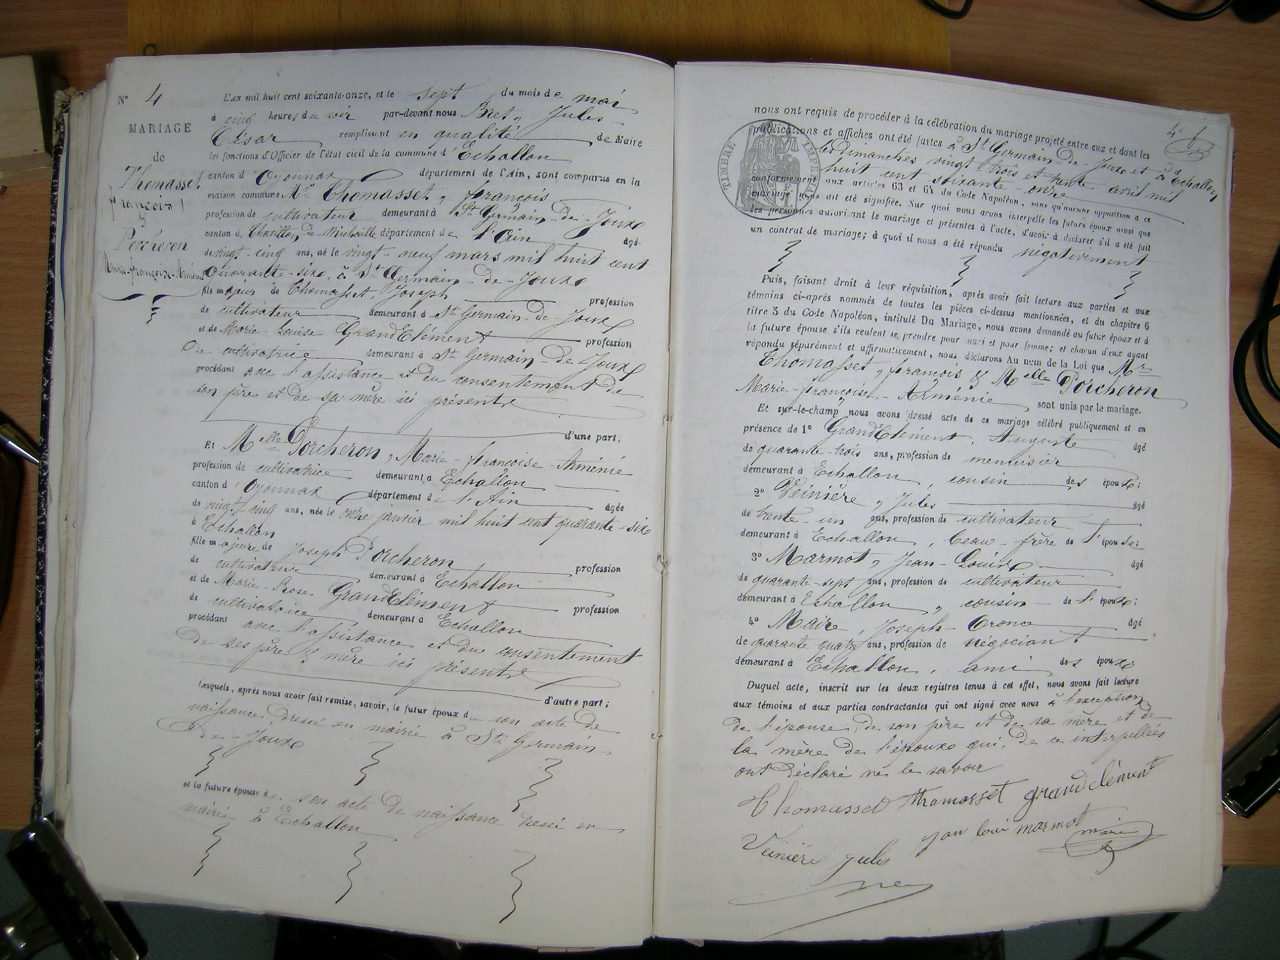 N° 4
MARIAGE
de
Thomasset
françois
&
Porcheron
Marie-françoise-Arménie
L'an mil huit cent soixante-onze, et le sept du mois de mai
à cinq heures du soir par-devant nous Jules
César remplissant en qualité de Maire
les fonctions d'Officier de l'état civil de la commune d'Echallon
canton d'Oyonnax département de l'Ain, sont comparus en la
maison commune Mr Thomasset, françois
profession de cultivateur demeurant à St Germain-de-Joux
canton de Chatillon de Michaille département de l'Ain âgé
de vingt-cinq ans, né le vingt-neuf mars mil huit cent
quarante-six, à St Germain-de-Joux
fils majeur de Thomasset, Joseph profession
de cultivateur demeurant à St Germain-de-Joux
et de Marie-Louise GrandClément profession
de cultivatrice demeurant à St Germain de Joux
procédant avec l'assistance et du consentement de
son père et de sa mère ici présents
d'une part;
Et Melle Porcheron, Marie-françoise-Arménie
profession de cultivatrice demeurant à Echallon
canton d'Oyonnax département de l'Ain âgée
de vingt-cinq ans, née le janvier mil huit cent quarante-six
à Echallon
fille majeure de Joseph Porcheron profession
de cultivateur demeurant à Echallon
et de Marie-Rose GrandClément profession
de cultivatrice demeurant à Echallon
procédant avec l'assistance et du consentement
de ses père & mère ici présents
d'autre part;
Lesquels, après nous avoir fait remise, savoir, le futur époux de son acte de
naissance dressé en mairie à St Germain-
de-Joux
et la future épouse de son acte de naissance dressé en
mairie à Echallon
4e
nous ont requis de procéder à la célébration du mariage projeté entre eux et dont les
publications et affiches ont été faites à St Germain-de-Joux et à Echallon
les dimanches vingt trois et trente avril mil
huit cent soixante-onze
conformément aux articles 63 et 64 du Code Napoléon, sans qu'aucune opposition à ce
mariage nous ait été signifiée. Sur quoi nous avons interpellé les futurs époux ainsi que
les personnes autorisant le mariage et présentes à l'acte, d'avoir à déclarer s'il a été fait
un contrat de mariage; à quoi il nous a été répondu négativement
TIMBRE IMPERIAL
Puis, faisant droit à leur réquisition, après avoir fait lecture aux parties et aux
témoins ci-après nommés de toutes les pièces ci-dessus mentionnées, et du chapitre 6
titre 5 du Code Napoléon, intitulé Du Mariage, nous avons demandé au futur époux et à
la future épouse s'ils veulent se prendre pour mari et pour femme; et chacun d'eux ayant
répondu séparément et affirmativement, nous déclarons Au nom de la Loi que Mr
Thomasset, françois & Melle Porcheron
Marie-françoise-Arménie sont unis par le mariage.
Et sur-le-champ nous avons dressé acte de ce mariage célébré publiquement et en
présence de 1° GrandClément, Auguste âgé
de quarante-trois ans, profession de menuisier
demeurant à Echallon, cousin des époux;
2° Veinière, Jules âgé
de trente-un ans, profession de cultivateur
demeurant à Echallon, beau-frère de l'épouse;
3° Marmot, Jean-Louis âgé
de quarante-sept ans, profession de cultivateur
demeurant à Echallon, cousin de l'époux;
4° Maire, Joseph âgé
de quarante quatre ans, profession de négociant
demeurant à Echallon, ami des époux
Duquel acte, inscrit sur les deux registres tenus à cet effet, nous avons fait lecture
aux témoins et aux parties contractantes qui ont signé avec nous à l'exception
de l'épouse, de son père et de sa mère et de
la mère de l'époux qui, de ce interpellés
ont déclaré ne le savoir
Thomasset thomasset grandclément
Veinière jules jan loui marmot maire